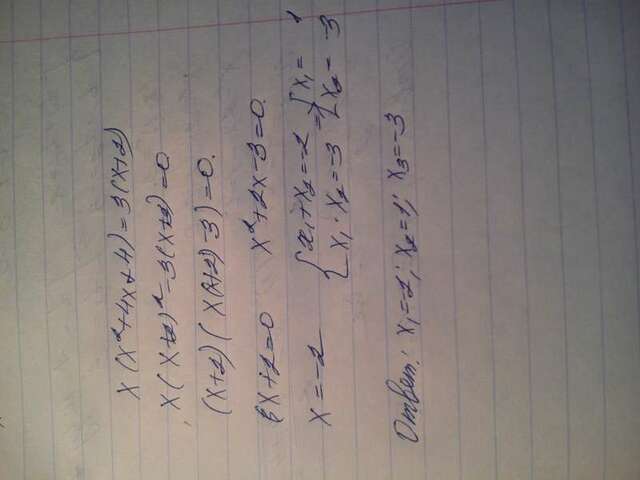 x(x²+4x+4)=3(x+2)
x(x+2)²-3(x+2)=0
(x+2)(x(x+2)-3)=0.
x+2=0 x²+2x-3=0.
x=-2 {x₁+x₂=-2 => {x₁=1
{x₁·x₂=-3 {x₂=-3
Ответ: x₁=-2; x₂=1; x₃=-3